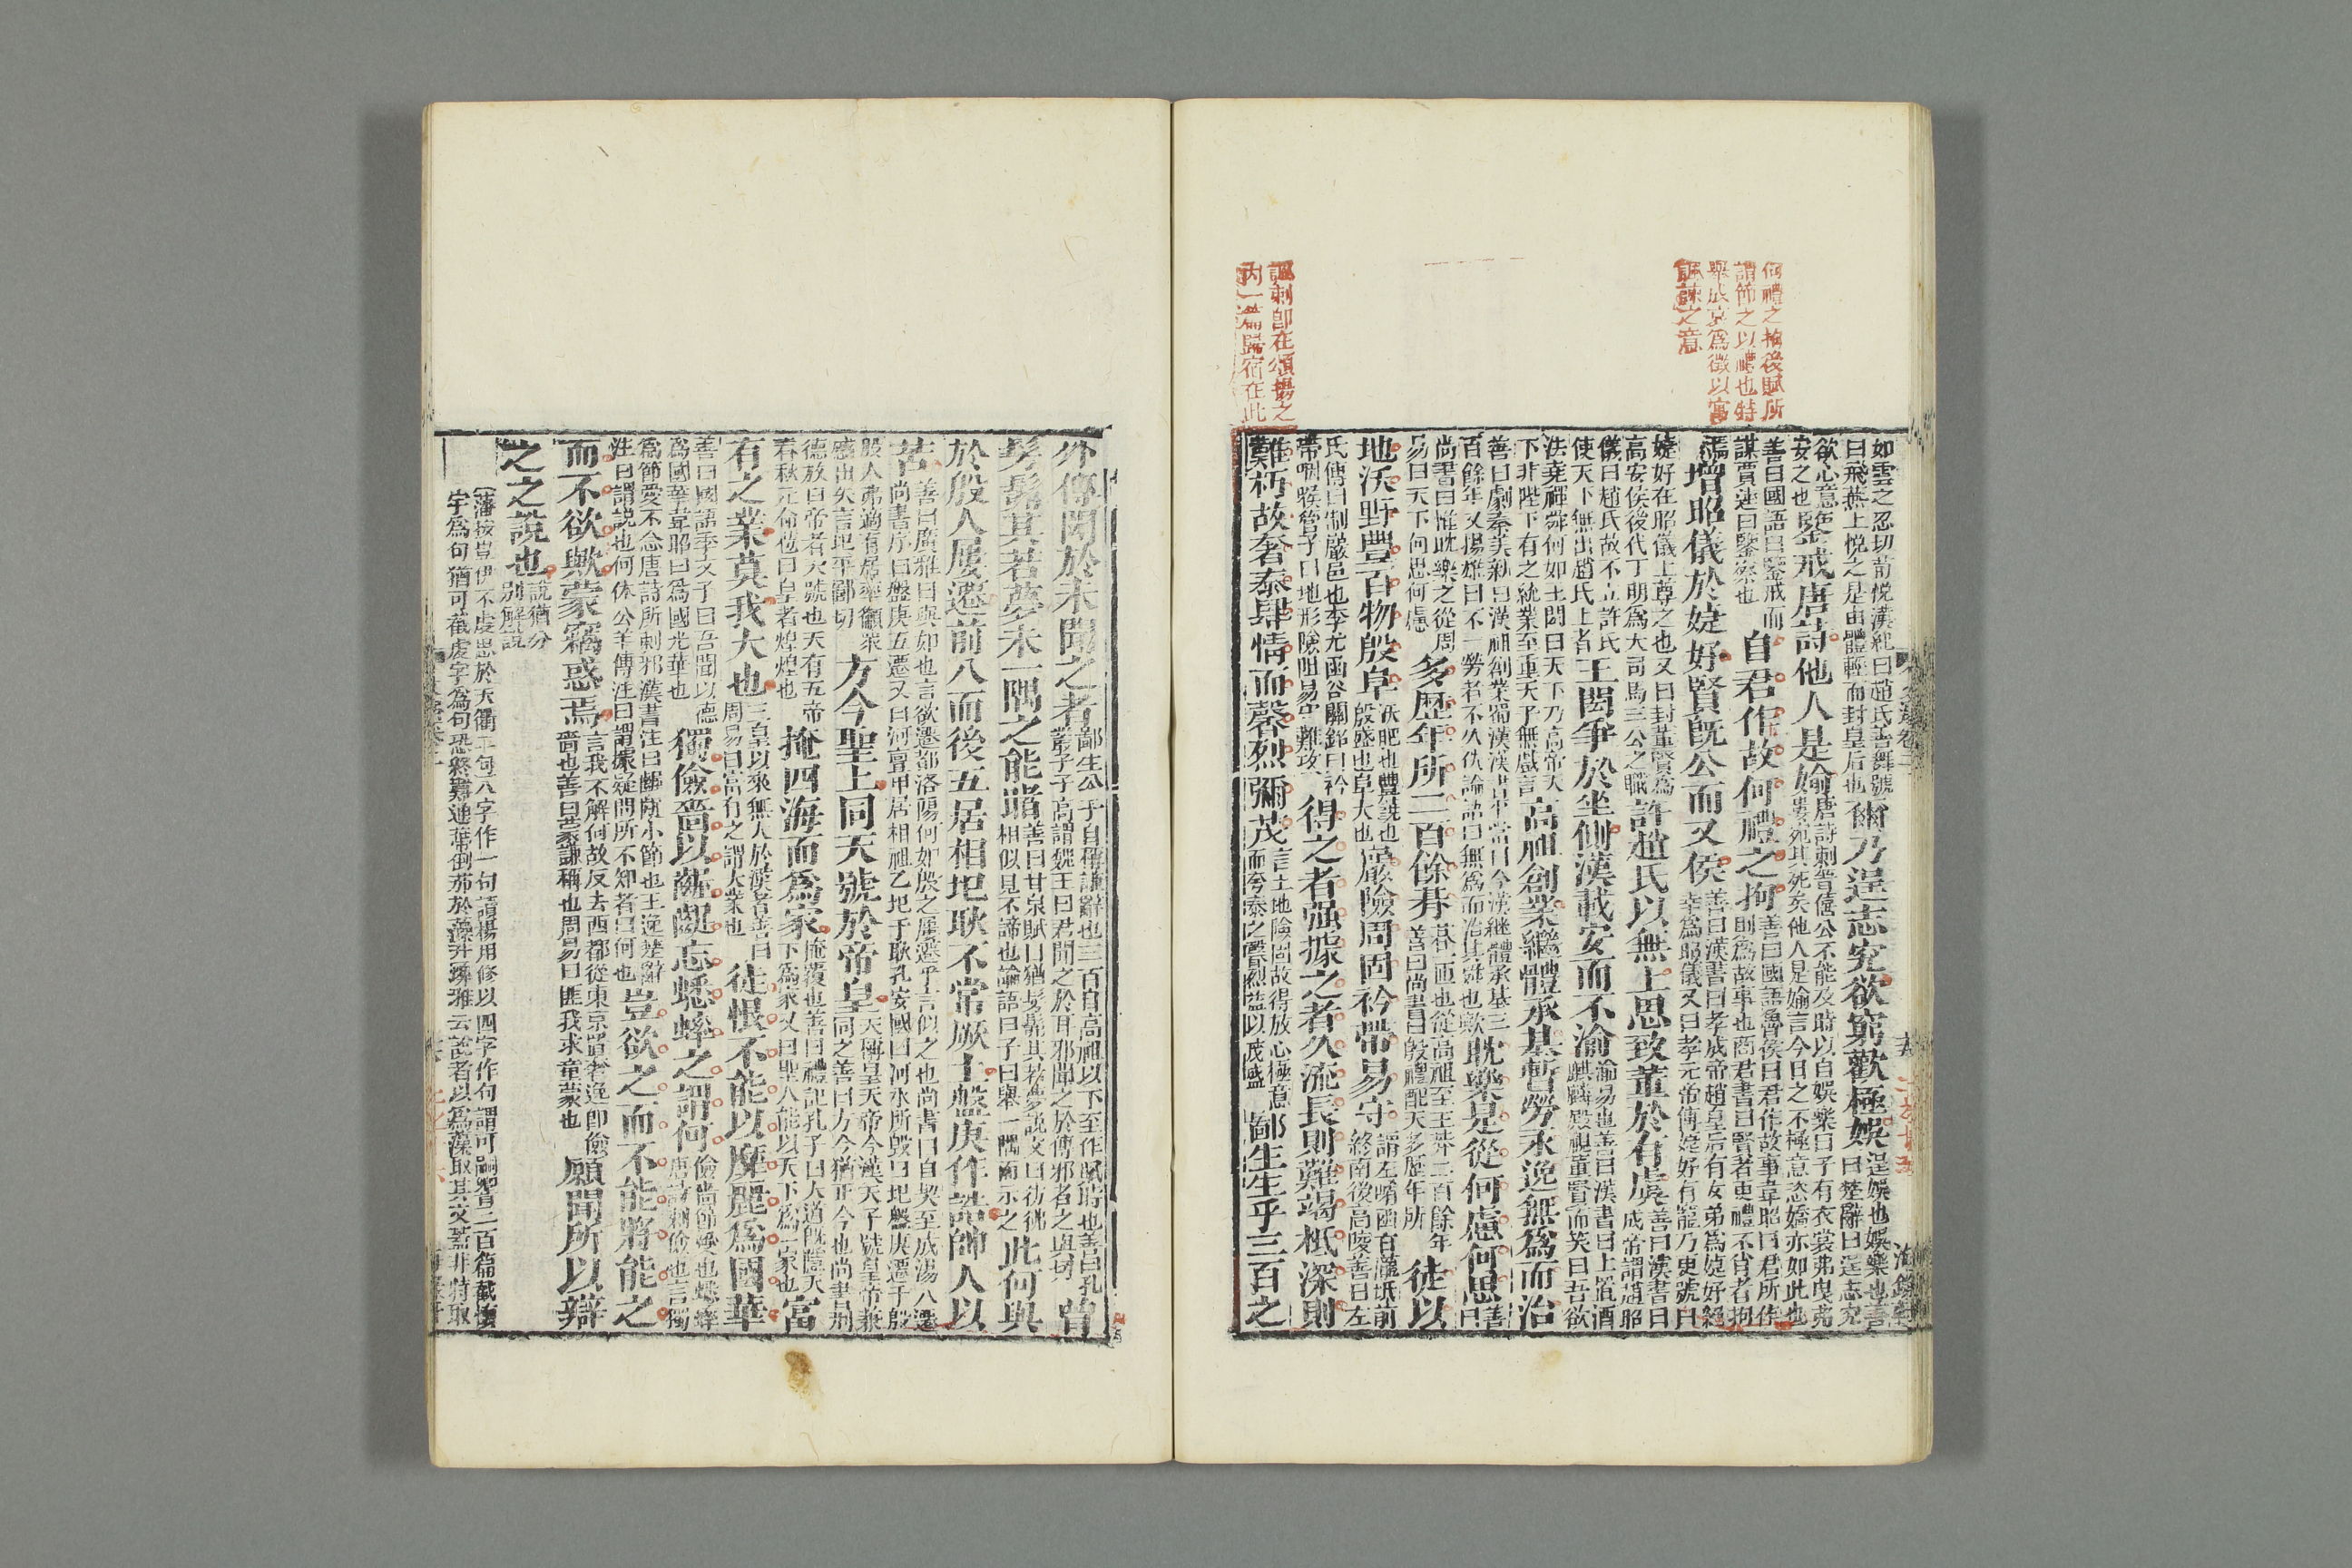 何禮之拘後賦所
謂節之以禮也特
舉成哀爲徵以寓
諷諫之意
諷刺卽在頌揚之
内一篇歸宿在此
如雲之忍切荀悅漢紀曰趙氏善舞號曰飛燕上悅之是由體輕而封皇后也爾乃逞志究欲窮歡極娛逞娛也娛樂也善曰楚辭曰逞志究
欲心意安之也鑒戒唐詩他人是媮唐詩刺晉僖公不能及時以自娛樂曰子有衣裳弗曳弗婁宛其死矣他人是媮言今日之不極意恣嬌亦如此也
善曰國語曰鑒戒而謀賈逵曰鑒察也自君作故何禮之拘善曰國語魯侯曰君作故事韋昭曰君所作則爲故事也商君書曰賢者更禮不肖者拘
焉增昭儀於婕妤賢既公而又侯善曰漢書曰孝成帝趙皇后有女弟爲婕妤絕幸爲昭儀又曰孝元帝傅婕妤有寵乃更號曰
婕妤在昭儀上尊之也又曰封董賢爲高安侯後代丁明爲大司馬三公之職許趙氏以無上思致董於有虞善曰漢書曰成帝謂趙昭
儀曰趙氏故不立許氏使天下無出趙氏上者王閎爭於坐側漢載安而不渝渝易也善曰漢書曰上置酒麒麟殿視董賢而笑曰吾欲
法堯禪舜何如王閎曰天下乃高帝天下非陛下有之統業至重天子無戲言高祖創業繼體承基暫勞永逸無爲而治
善曰劇秦美新曰漢祖創業蜀漢漢書平當曰今漢繼體承基三百餘年又揚雄曰不一勞者不久佚論語曰無爲而治其舜也歟耽樂是從何慮何思善曰
尚書曰惟耽樂之從周易曰天下何思何慮多歷年所二百餘朞善曰尚書曰殷禮配天多歷年所朞一匝也從高祖至王莽二百餘年徒以
地沃野豐百物殷阜沃肥也豐饒也殷盛也阜大也巖險周固衿帶易守謂左崤函右隴坻前終南後高陵善曰左
氏傳曰制巖邑也李尤函谷關銘曰衿帶咽喉管子曰地形險阻易守難攻得之者强據之者久流長則難竭柢深則
難朽故奢泰肆情而馨烈彌茂言土地險固故得放心極意而夸泰之馨烈益以茂盛鄙生生乎三百之
外傳聞於未聞之者鄙生公子自稱謙辭也三百自高祖以下至作賦時也善曰孔叢子子高謂魏王曰君聞之於耳邪聞之於傳邪者之與切曾
髣髴其若夢未一隅之能睹善曰甘泉賦曰猶髣髴其若夢說文曰彷彿相似見不諦也論語曰子曰舉一隅而示之此何與
於殷人屢遷前八而後五居相圮耿不常厥土盤庚作誥帥人以
苦善曰廣雅曰與如也言欲遷都洛陽何如殷之屢遷乎言似之也尚書曰自契至成湯八遷尚書序曰盤庚五遷又曰河亶甲居相祖乙圮于耿孔安國曰河水所毀曰圮盤庚遷于殷
殷人弗適有居率籲衆慼出矢言圮平鄙切方今聖上同天號於帝皇天稱皇天帝今漢天子號皇帝兼同之善曰方今猶正今也尚書刑
德放曰帝者天號也天有五帝春秋元命苞曰皇者煌煌也掩四海而爲家掩覆也善曰禮記孔子曰大道既隱天下爲家又曰聖人能以天下爲一家也富
有之業莫我大也三皇以來無大於漢者善曰周易曰富有之謂大業也徒恨不能以靡麗爲國華
善曰國語季文子曰吾聞以德爲國華韋昭曰爲國光華也獨儉嗇以齷齪忘蟋蟀之謂何儉嗇節愛也蟋蟀唐詩刺儉也言獨
爲節愛不念唐詩所刺邪漢書注曰齷齪小節也王逸楚辭注曰謂說也何休公羊傳注曰謂據疑問所不知者曰何也豈欲之而不能將能之
而不欲歟蒙竊惑焉言我不解何故反去西都從東京置奢逸卽儉嗇也善曰蒙謙稱也周易曰匪我求童蒙也願聞所以辯
之之說也說猶分別解說